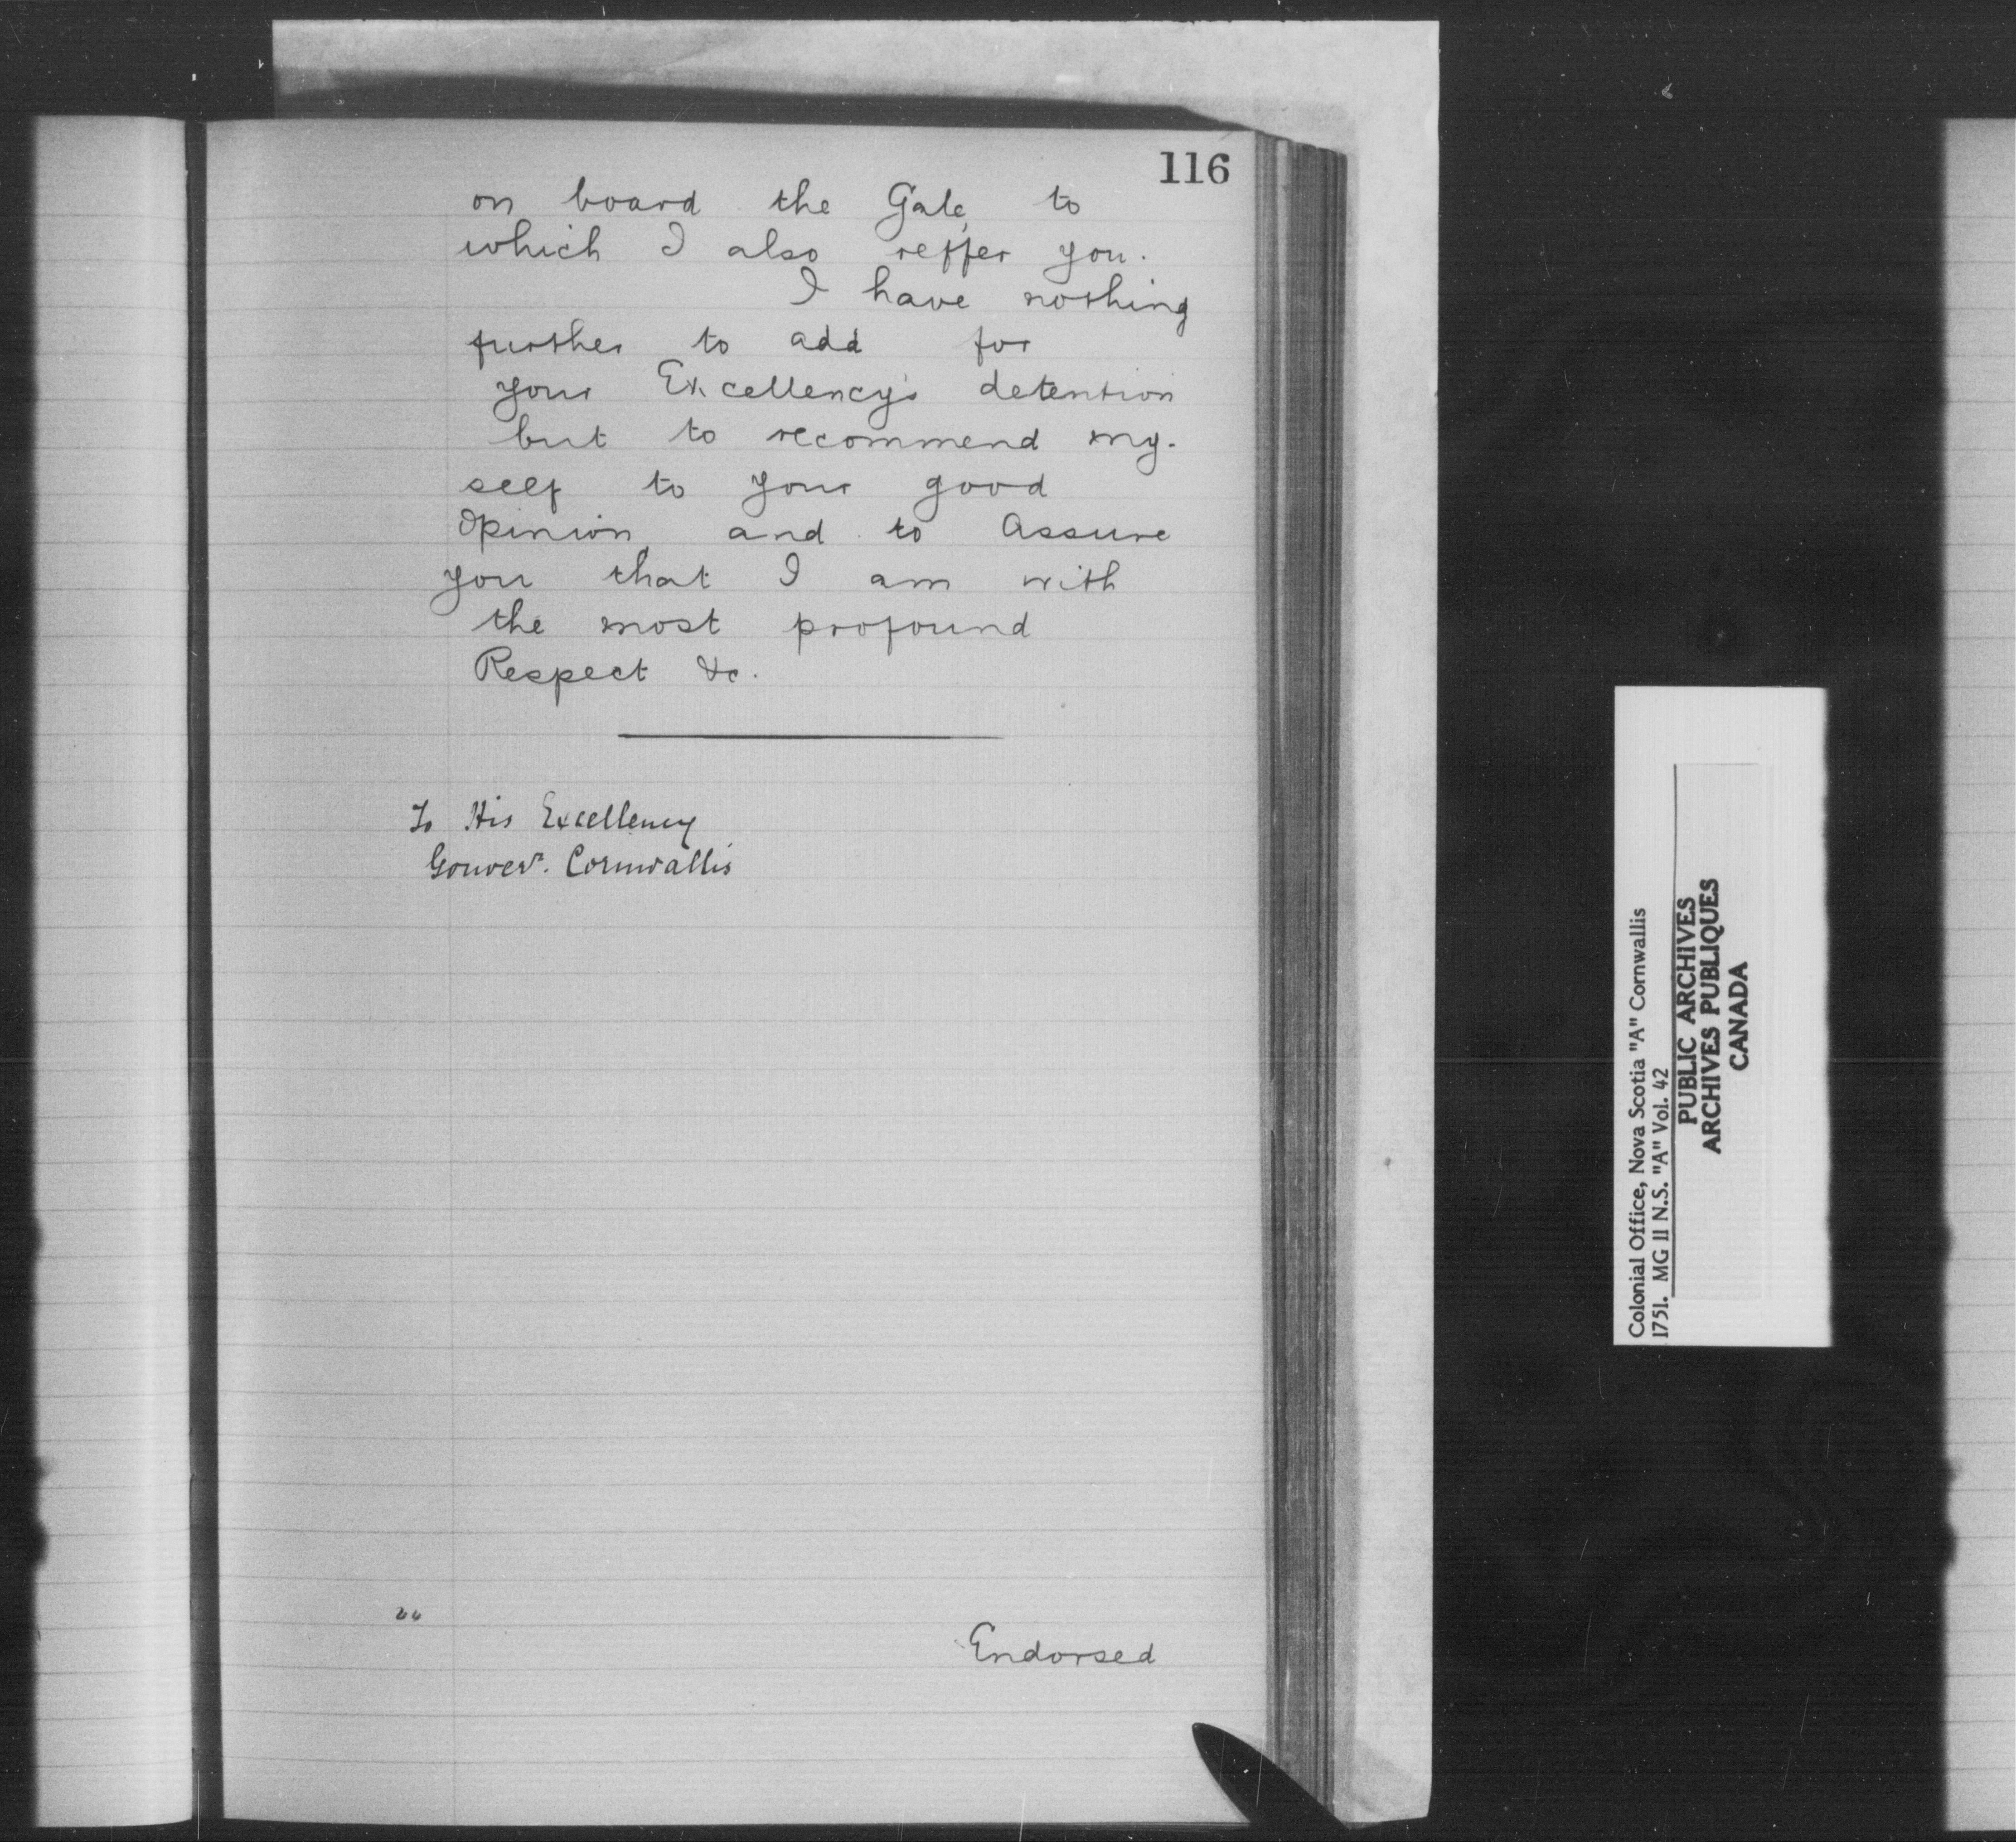 116
on board the Gale, to
which I also reffer you.
I have nothing
further to add for
your Excellency's detention
but to recommend my-
self to your good
Opinion, and to Assure
you that I am with
the most profound
Respect &c.
To His Excellency
Gouver.r Cornwallis
Endorsed
Colonial Office, Nova Scotia "A" Cornwallis
1751. MG 11 N.S. "A" Vol. 42
PUBLIC ARCHIVES
ARCHIVES PUBLIQUES
CANADA